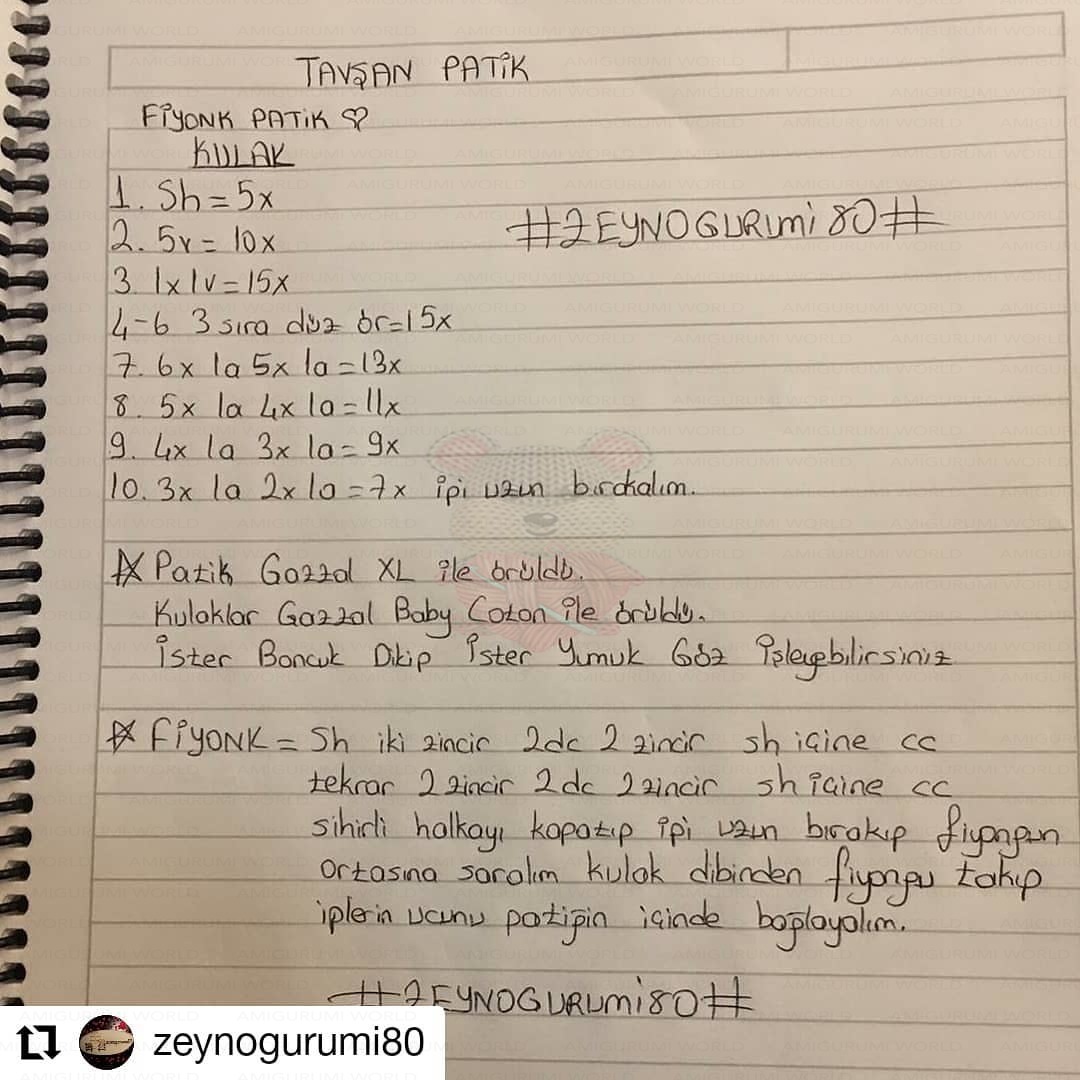 TAVŞAN PATİK
FİYONK PATİK ♡
KULAK
1. Sh = 5x
2. 5v = 10x
#ZEYNOGURUMi80#
3 1x 1v = 15x
4-6 3 sıra düz ör=15x
7. 6x 1a 5x 1a = 13x
8. 5x 1a 4x 1a = 11x
9. 4x 1a 3x 1a = 9x
10. 3x 1a 2x 1a = 7x ipi uzun bırakalım.
☆ Patik Gazzal XL ile örüldü.
Kulaklar Gazzal Baby Coton ile örüldü.
İster Boncuk Dikip İster Yumuk Göz İşleyebilirsiniz
☆ FİYONK = Sh iki zincir 2dc 2 zincir sh içine cc
tekrar 2 zincir 2dc 2 zincir sh içine cc
sihirli halkayı kapatıp ipi uzun bırakıp fiyongun
ortasına saralım kulak dibinden fiyongu takıp
iplerin ucunu patiğin içinde bağlayalım.
#ZEYNOGURUMi80#
zeynogurumi80
AMIGURUMI WORLD